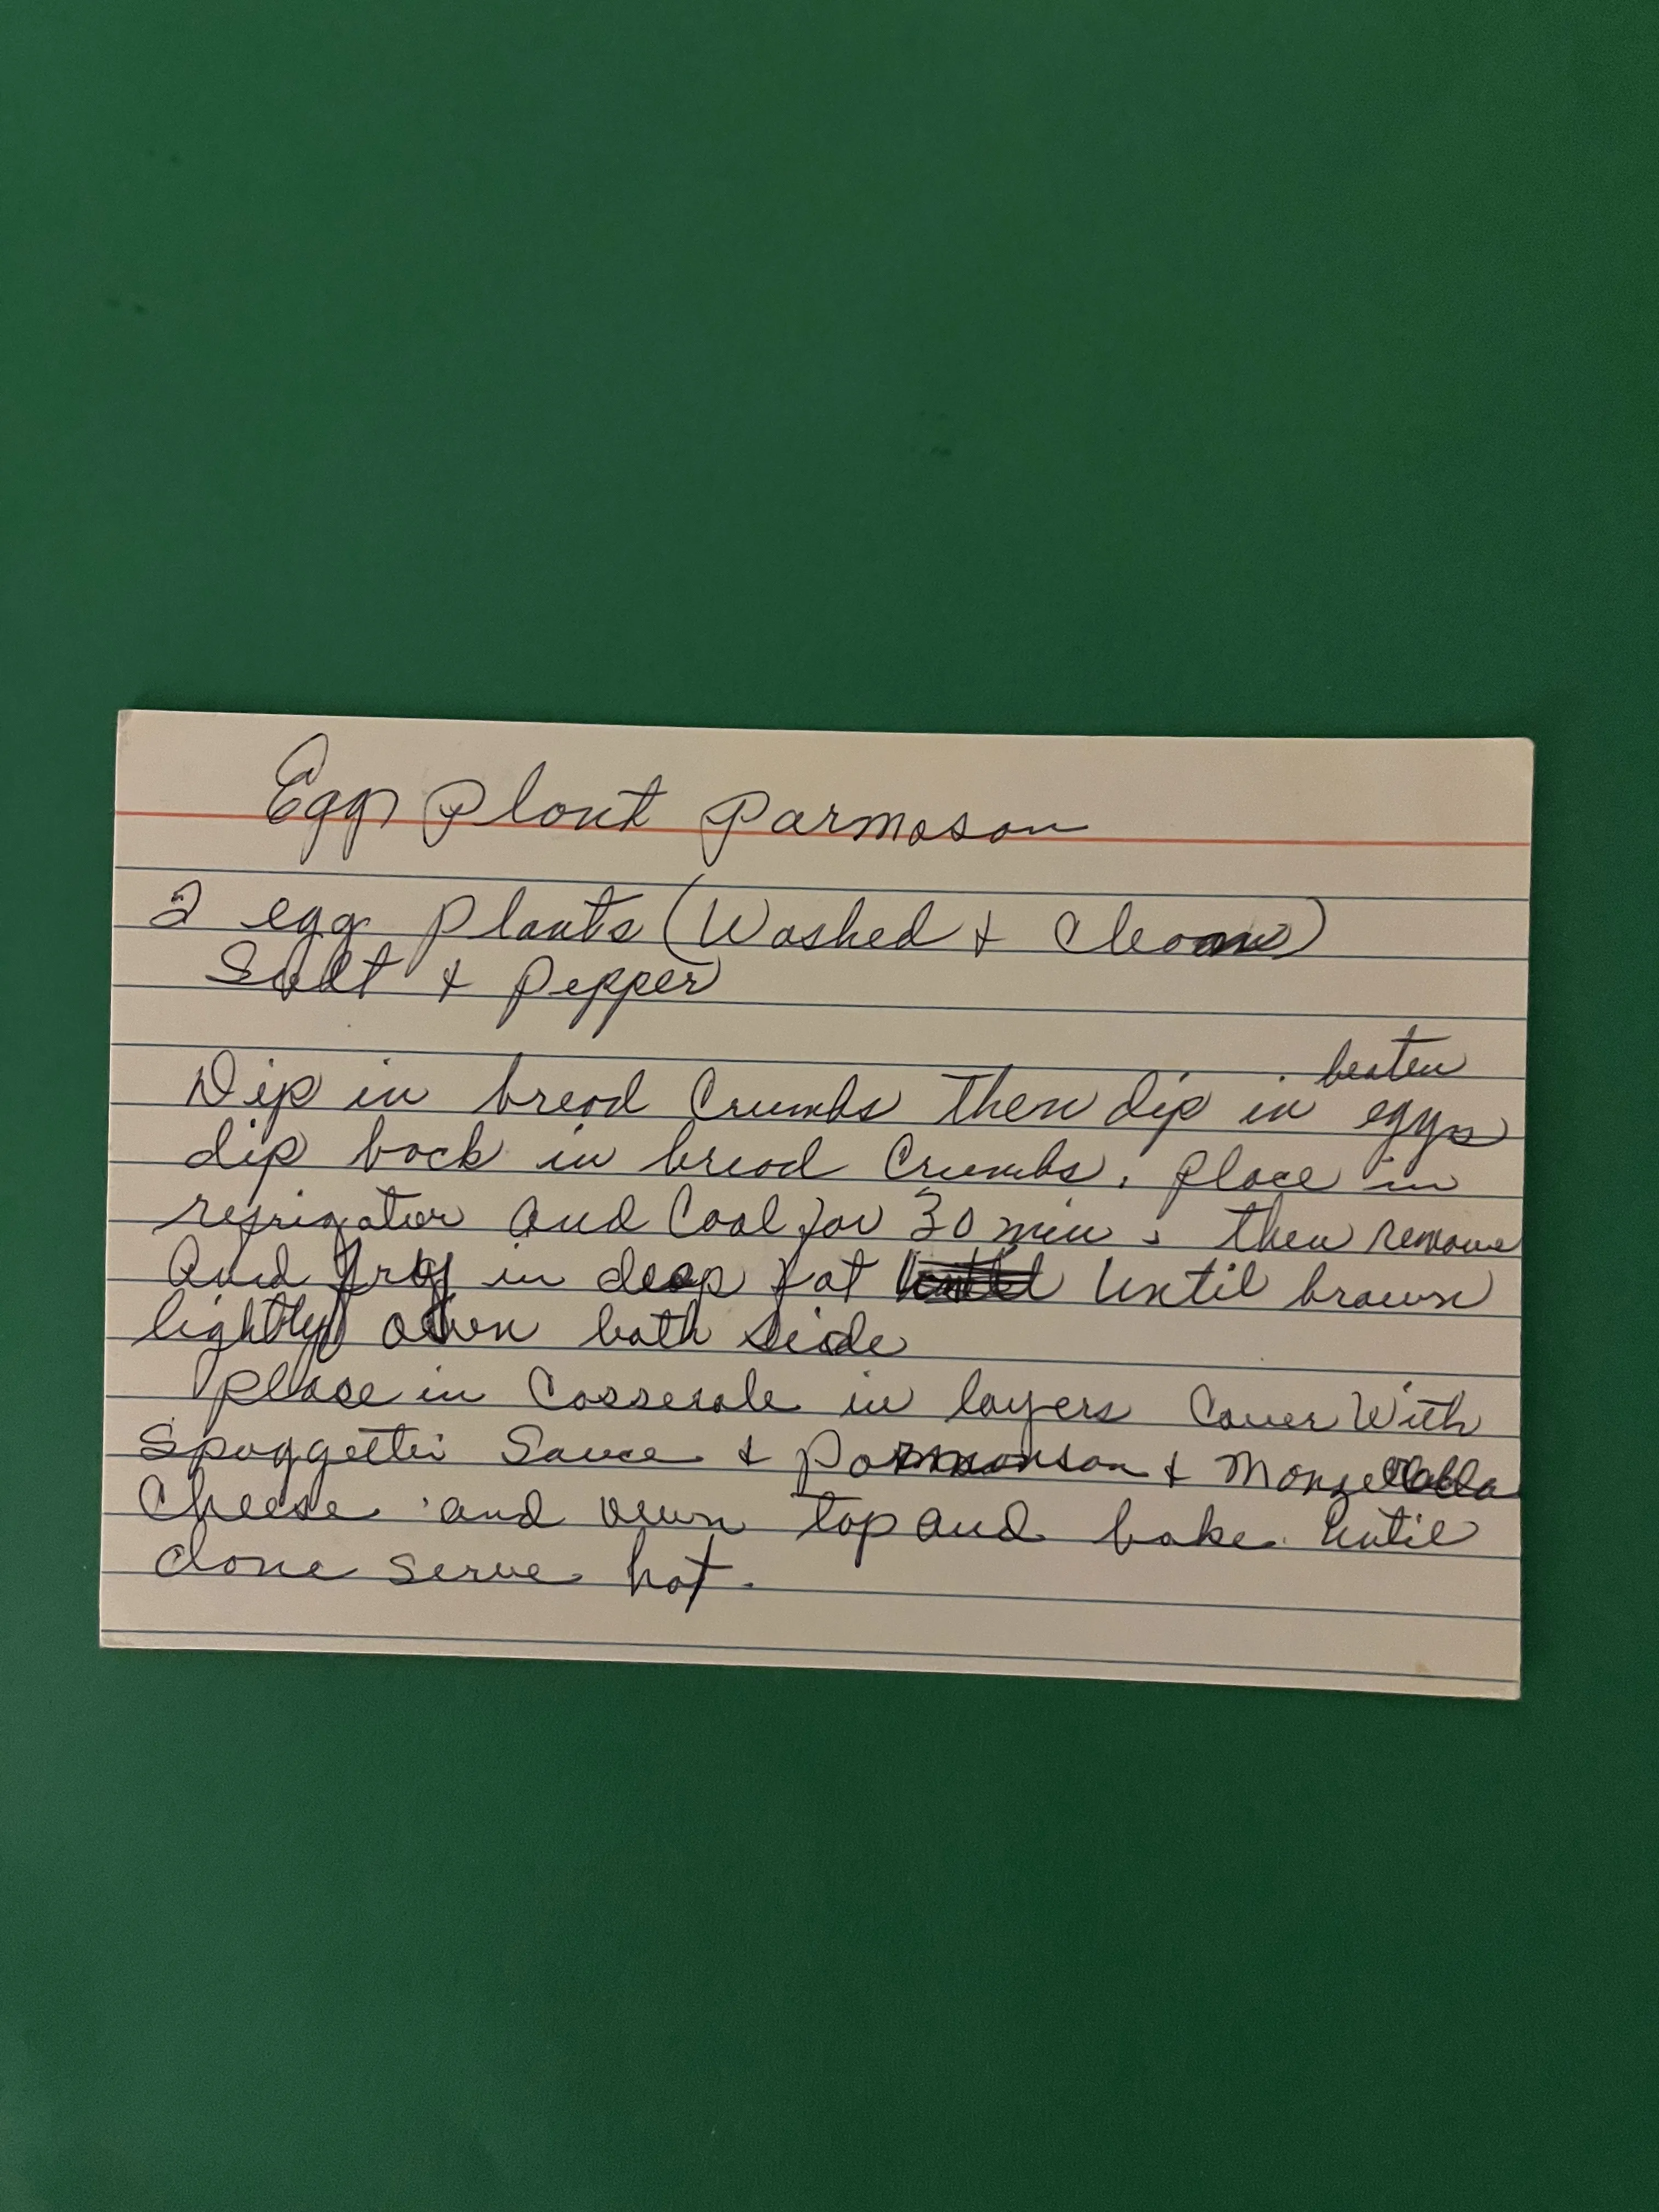 Egg Plant Parmason
2 egg plants (Washed & Clean)
Salt & Pepper
Dip in bread Crumbs then dip in beaten eggs
dip back in bread Crumbs. Place in
refrigator and Cool for 30 min. then remove
And fry in deep fat until brown
lightly on both side
Place in Casserole in layers Cover With
Spaggetti Sauce & Parmanson & Monzerella
Cheese and over top and bake until
done serve hot.